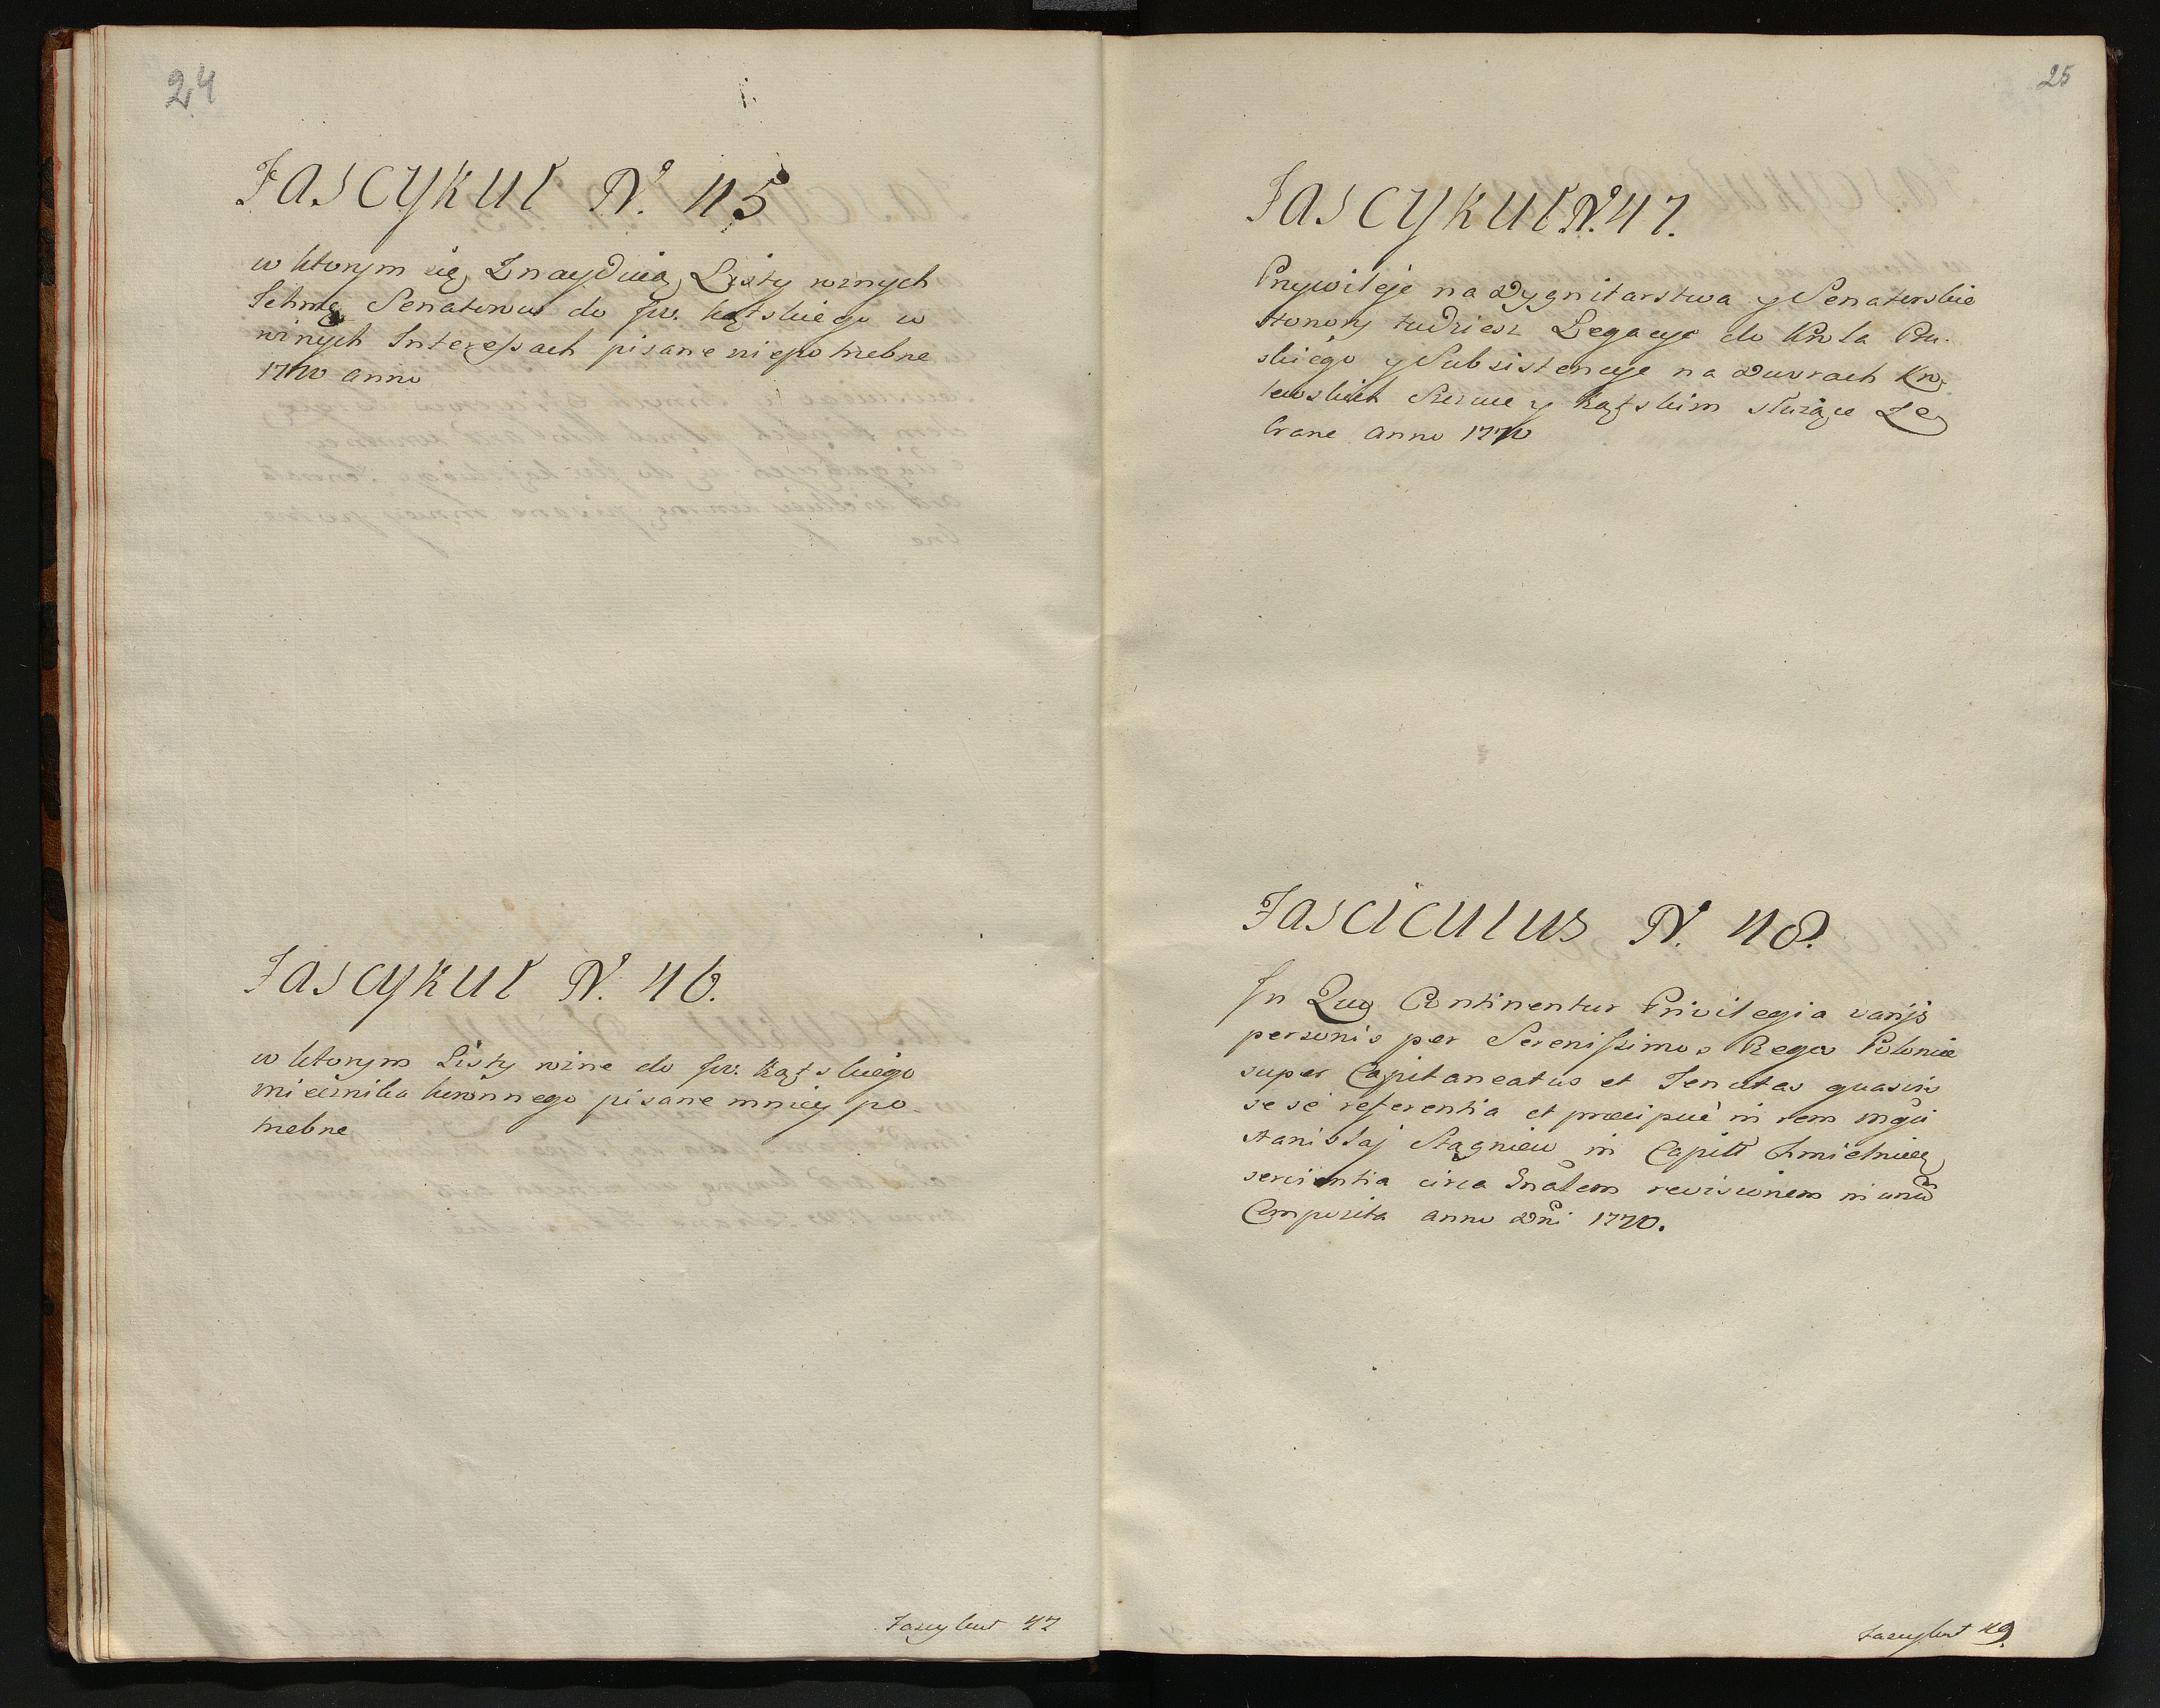 24
Fascykuł N. 45
w ktorym się Znayduią Listy roznych
Ichmę Senatorow do Jw. Kątskiego w
roznych Interessach pisane niepotrzebne
1770 anno
Fascykuł N. 46.
w ktorym Listy rozne do Jw. Kątskiego
miecznika koronnego pisane mniey po-
trzebne
Fascykuł 47
25
Fascykuł N. 47.
Przywileje na Dygnitarstwa y Senatorskie
Honory tudziesz Legacye do Krola Pru-
skiego y Subsistencye na Dworach Kro-
lewskich Rzewu y Kątskim służące Ze
brane anno 1770
Fasciculus N. 48.
In Quo Continentur Privilegia varijs
personis per Serenissimos Reges Poloniæ
super Capitaneatus et Tenutas quasvis
se se referentia et præcipuè in rem Mgci
Stanislaj in Capitt Chmielnicen
servientia circa Gnalem revisionem in unu
Composita anno Dni 1770.
Fascykuł 49